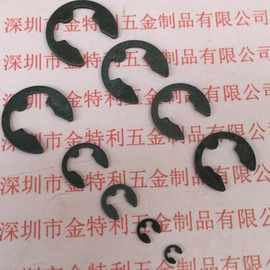 深圳市金特利五金制品有限公司
深圳市金特利五金制品有限公司
深圳市金特利五金制品有限公司
深圳市金特利五金制品有限公司
深圳市金特利五金制品有限公司